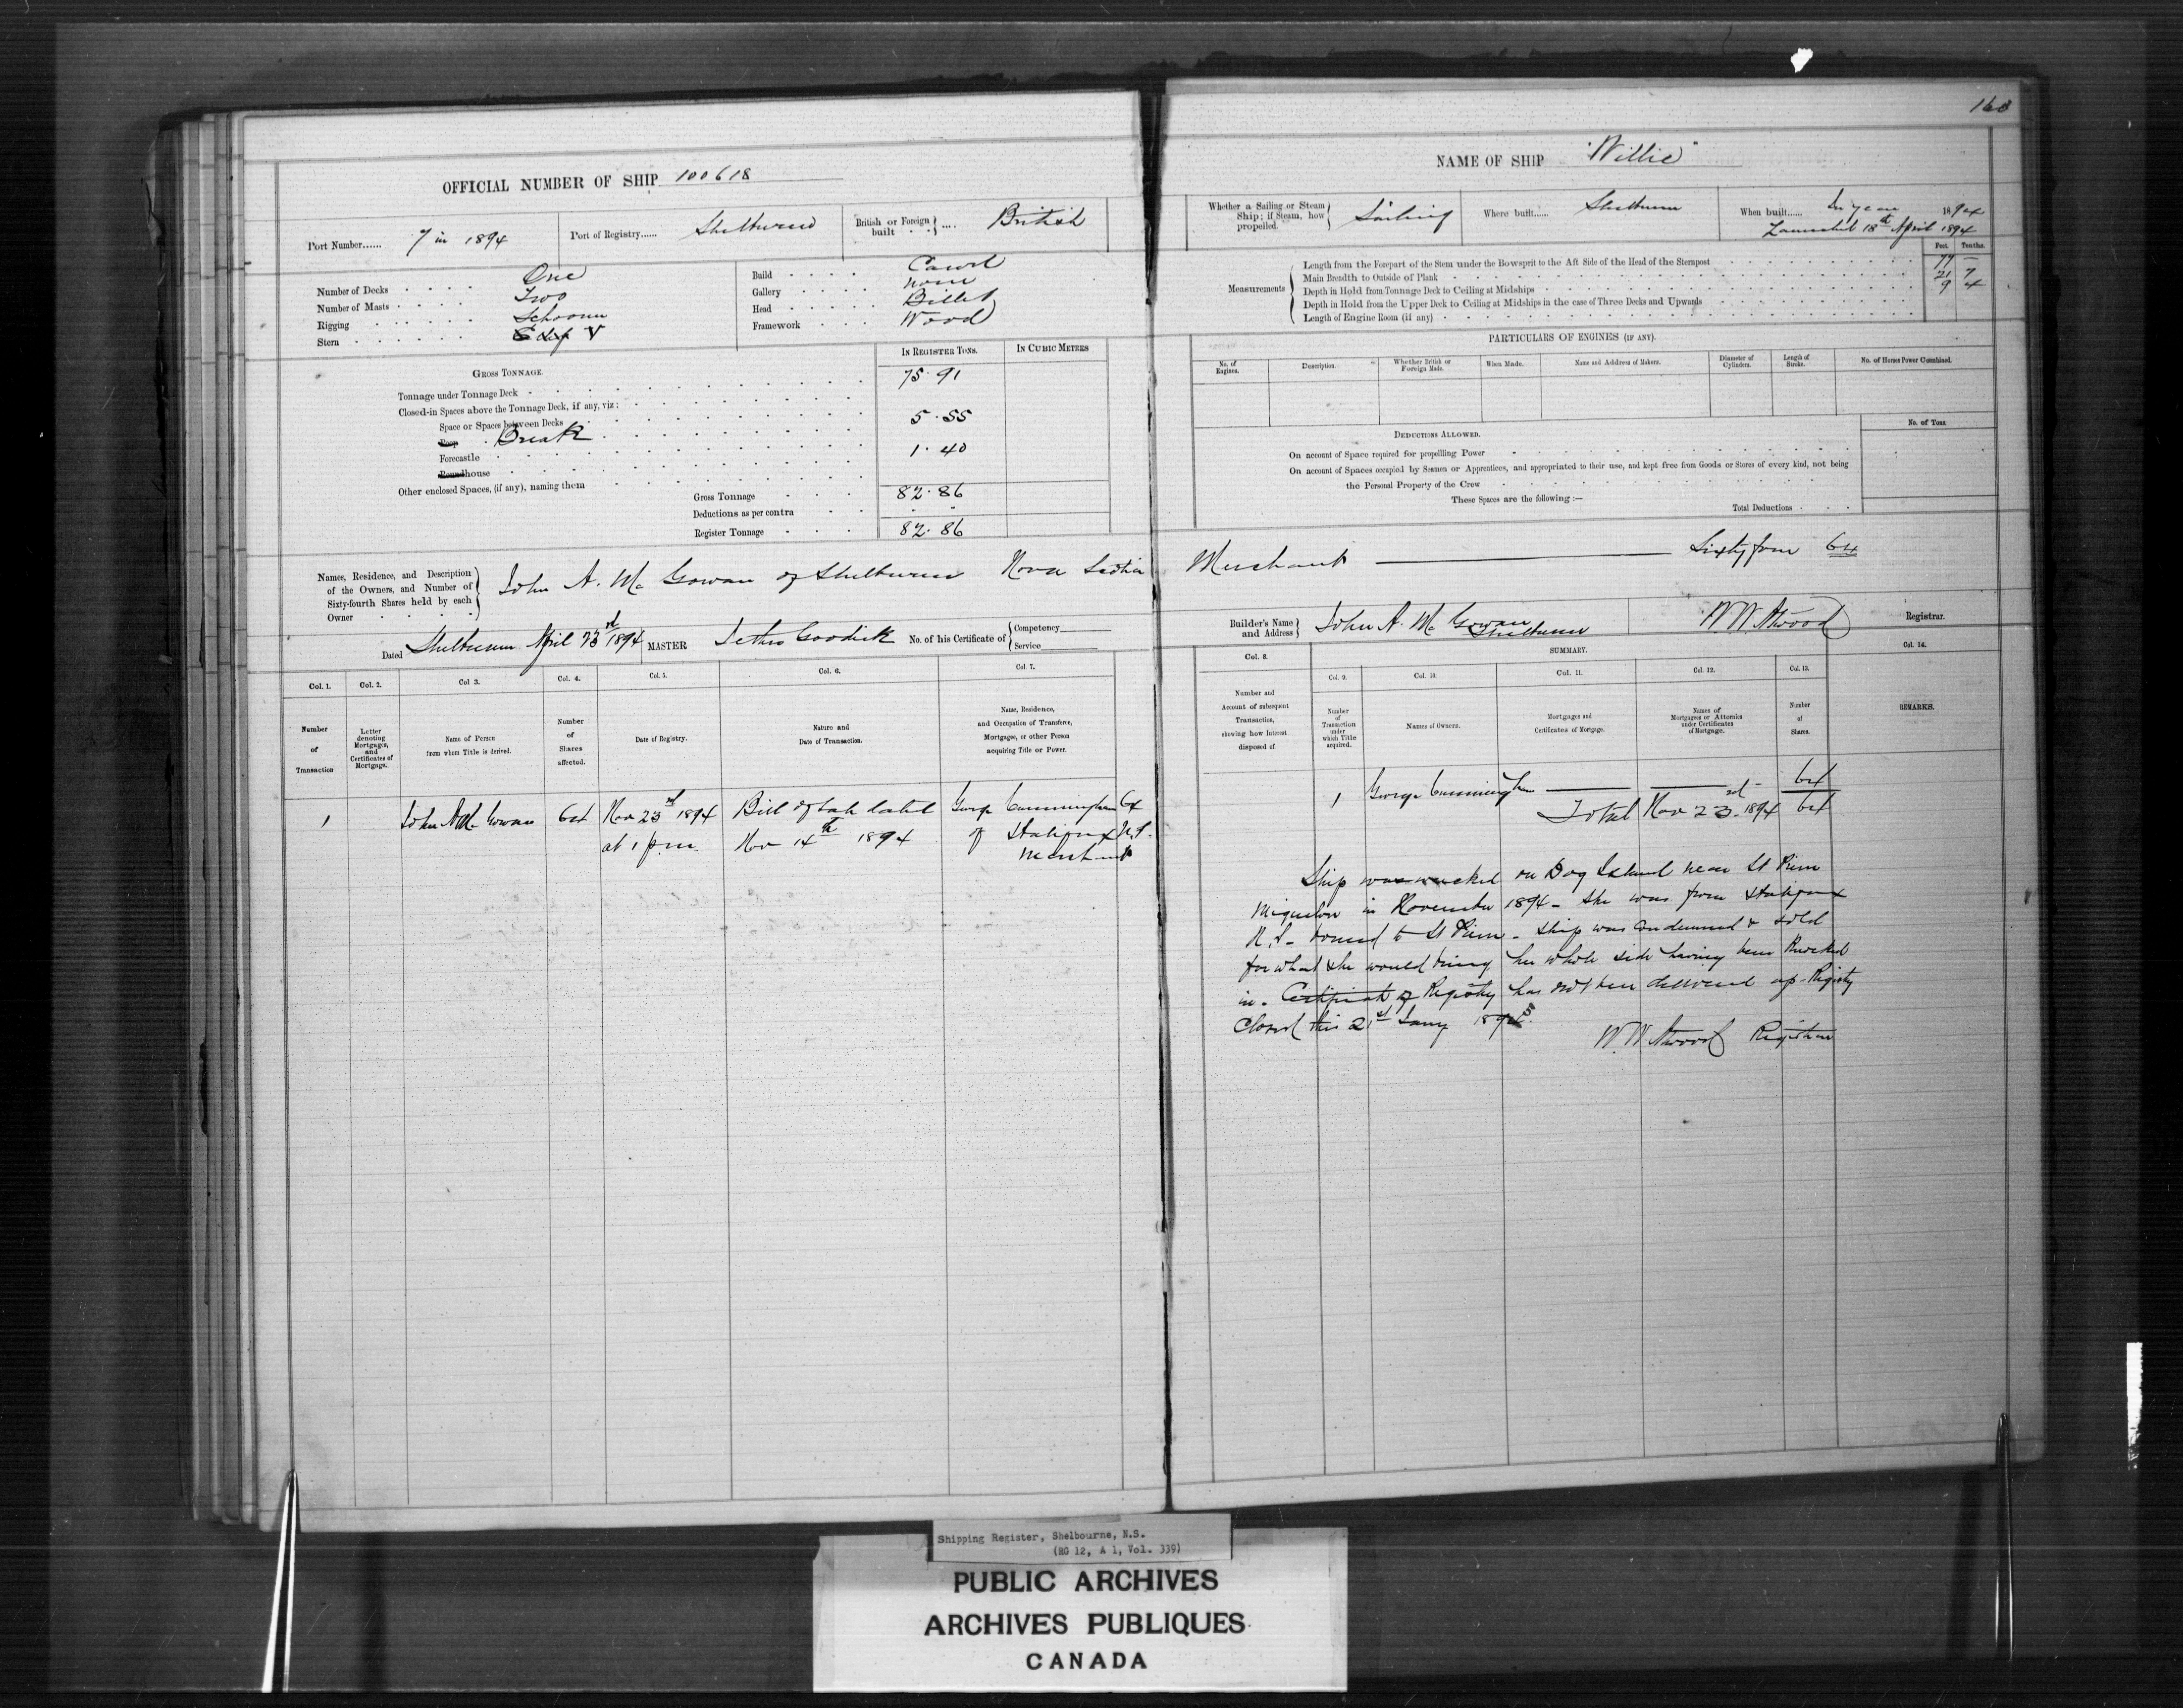 160
OFFICIAL NUMBER OF SHIP 100618
Port Number...... 7 in 1894
Port of Registry...... Shelburne
British or Foreign built .... British
Number of Decks One
Number of Masts Two
Rigging Schooner
Stern
Build Carvel
Gallery none
Head Billet
Framework Wood
GROSS TONNAGE.
IN REGISTER TONS.
IN CUBIC METRES
Tonnage under Tonnage Deck 75.91
Closed-in Spaces above the Tonnage Deck, if any, viz:
Space or Spaces between Decks
Poop Break 5.55
Forecastle
Roundhouse 1.40
Other enclosed Spaces, (if any), naming them
Gross Tonnage 82.86
Deductions as per contra
Register Tonnage 82.86
Names, Residence, and Description
of the Owners, and Number of
Sixty-fourth Shares held by each
Owner
John A. Mc Gowan of Shelburne Nova Scotia
Dated Shelburne April 23rd 1894 MASTER Jethro Goodick No. of his Certificate of
Competency
Service
Col. 1.
Col. 2.
Col 3.
Col. 4.
Col. 5.
Col. 6.
Col. 7.
Number
of
Transaction
Letter
denoting
Mortgages,
and
Certificates of
Mortgage.
Name of Person
from whom Title is derived.
Number
of
Shares
affected.
Date of Registry.
Nature and
Date of Transaction.
Name, Residence,
and Occupation of Transferee,
Mortgagee, or other Person
acquiring Title or Power.
1 John A Mc Gowan 64 Nov 23rd 1894 Bill of Sale dated George Cunningham 64
at 1 p.m. Nov 14th 1894 of Halifax N.S.
Merchant
NAME OF SHIP "Willie"
Whether a Sailing or Steam
Ship; if Steam, how
propelled.
Sailing
Where built...... Shelburne
When built...... In year 1894
Launched 18th April 1894
Feet. Tenths.
Measurements
Length from the Forepart of the Stem under the Bowsprit to the Aft Side of the Head of the Sternpost 77 –
Main Breadth to Outside of Plank 21 7
Depth in Hold from Tonnage Deck to Ceiling at Midships 9 4
Depth in Hold from the Upper Deck to Ceiling at Midships in the case of Three Decks and Upwards
Length of Engine Room (if any)
PARTICULARS OF ENGINES (IF ANY).
No. of
Engines.
Description.
Whether British or
Foreign Made.
When Made.
Name and Address of Makers.
Diameter of
Cylinders.
Length of
Stroke.
No. of Horses Power Combined.
DEDUCTIONS ALLOWED.
No. of Tons.
On account of Space required for propelling Power
On account of Spaces occupied by Seamen or Apprentices, and appropriated to their use, and kept free from Goods or Stores of every kind, not being
the Personal Property of the Crew
These Spaces are the following :—
Total Deductions
Merchant — Sixty four 64
Builder's Name
and Address
John A. Mc Gowan
Shelburne
W W Atwood Registrar.
Col. 8.
SUMMARY.
Col. 14.
Col. 9.
Col. 10.
Col. 11.
Col. 12.
Col. 13.
Number and
Account of subsequent
Transaction,
showing how Interest
disposed of.
Number
of
Transaction
under
which Title
acquired.
Names of Owners.
Mortgages and
Certificates of Mortgage.
Names of
Mortgagees or Attornies
under Certificates
of Mortgage.
Number
of
Shares.
REMARKS.
1 George Cunningham 64
Total Nov 23rd 1894 64
Ship was wrecked on Dog Island near St Pierre
Miquelon in November 1894 - She was from Halifax
N.S - bound to St Pierre - Ship was condemned & sold
for what she would bring her whole side having been knocked
in - Certificate of Registry has not been delivered up - Registry
Closed this 21st Jany 1895.
W. W Atwood Registrar
Shipping Register, Shelbourne, N.S.
(RG 12, A 1, Vol. 339)
PUBLIC ARCHIVES
ARCHIVES PUBLIQUES
CANADA